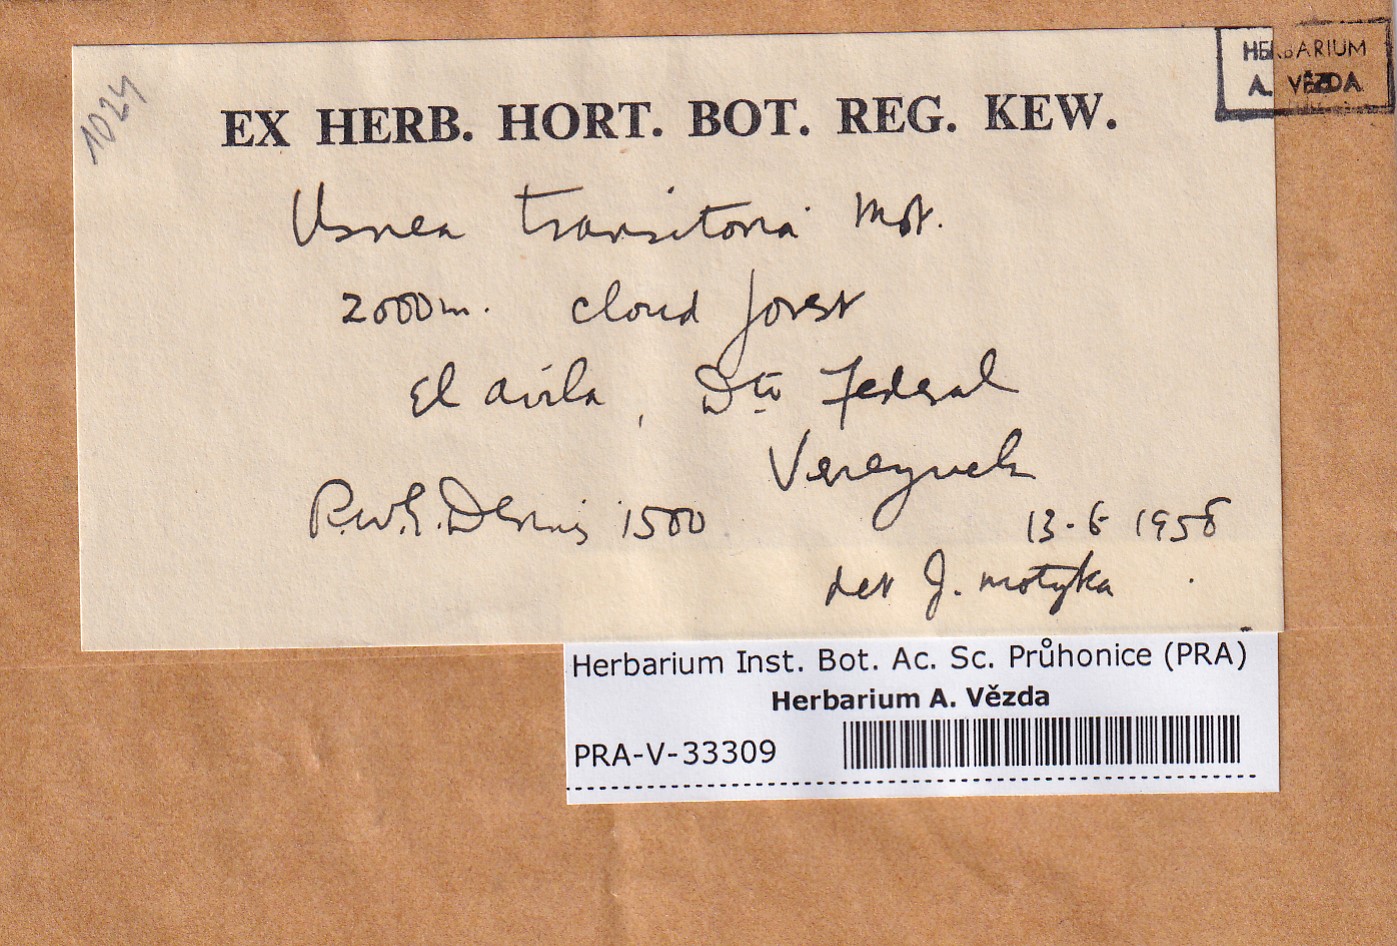 1024
HERBARIUM
A. VĚZDA
EX HERB. HORT. BOT. REG. KEW.
Usnea transitoria Mot.
2000m. cloud forest
El Avila, Dto Federal
Venezuela
R.W.G. Dennis 1500
13-6 1958
det J. Motyka
Herbarium Inst. Bot. Ac. Sc. Průhonice (PRA)
Herbarium A. Vězda
PRA-V-33309